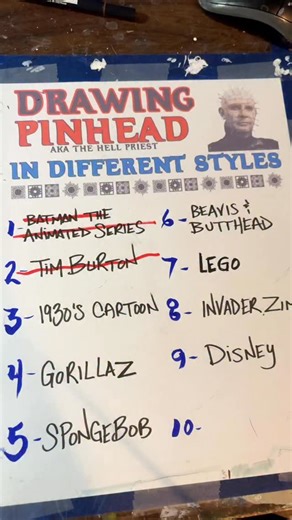 DRAWING
PINHEAD
AKA THE HELL PRIEST
IN DIFFERENT STYLES
1- BATMAN THE
ANIMATED SERIES
2- TIM BURTON
3- 1930'S CARTOON
4- GORILLAZ
5- SPONGEBOB
6- BEAVIS &
BUTTHEAD
7- LEGO
8- INVADER ZIM
9- DISNEY
10-